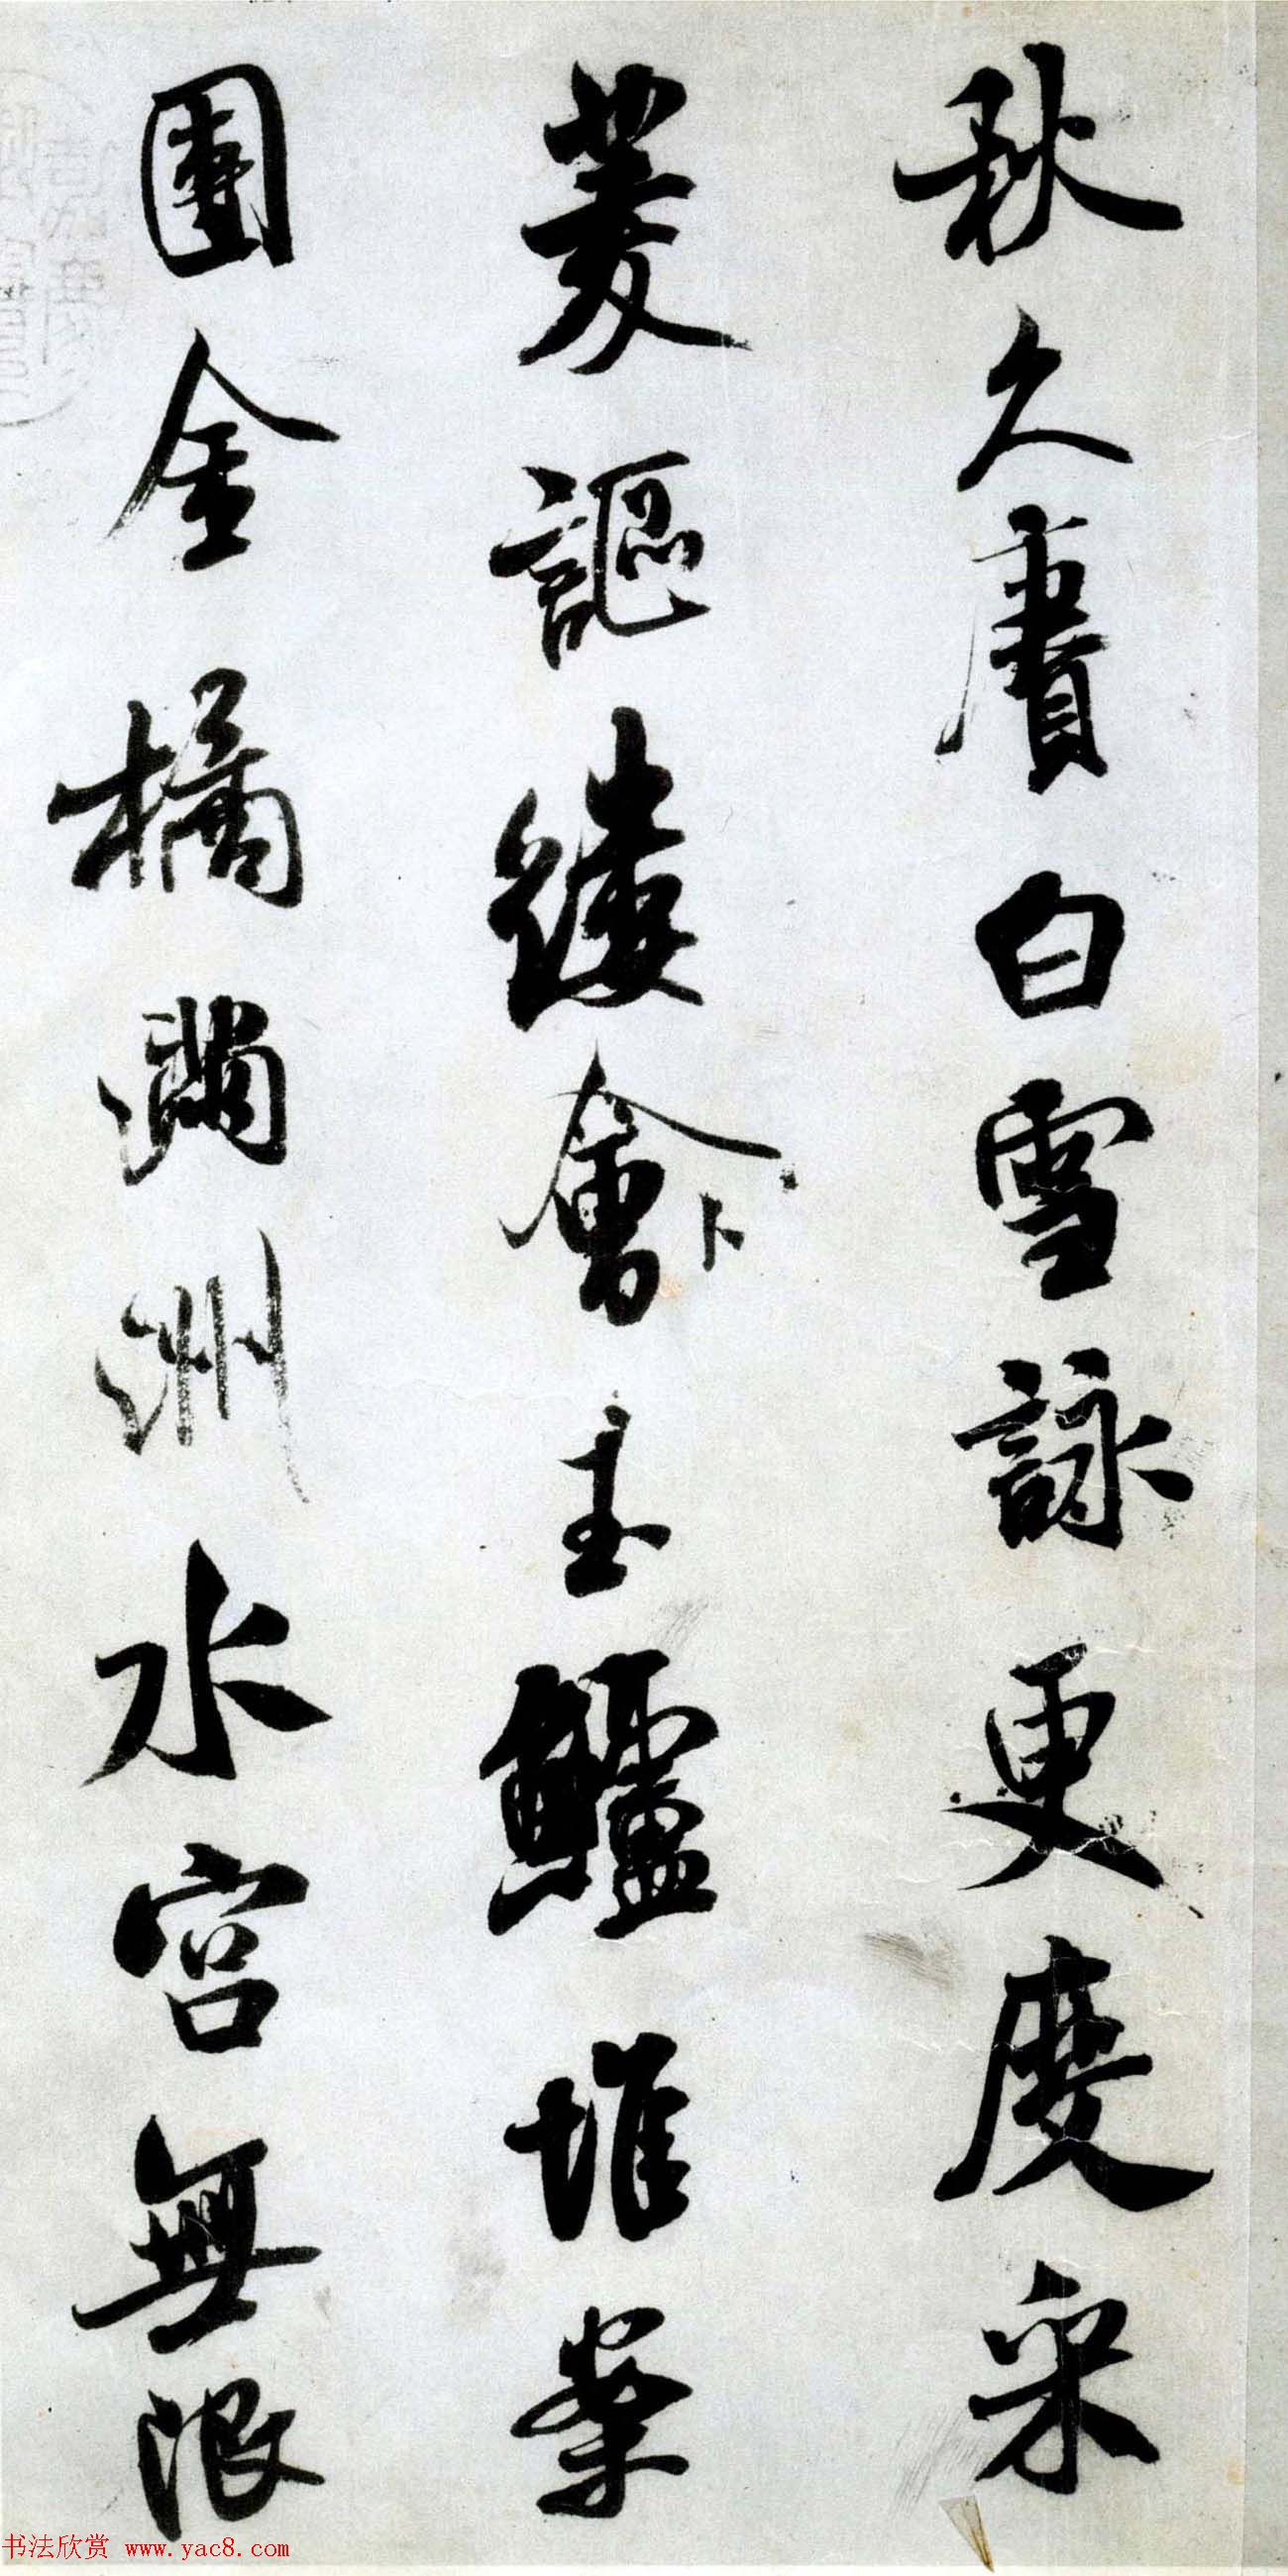 秋久賡白雪詠更度采
菱謳縷會卜玉鱸堆案
團金橘滿洲水宮無限
书法欣赏 www.yac8.com